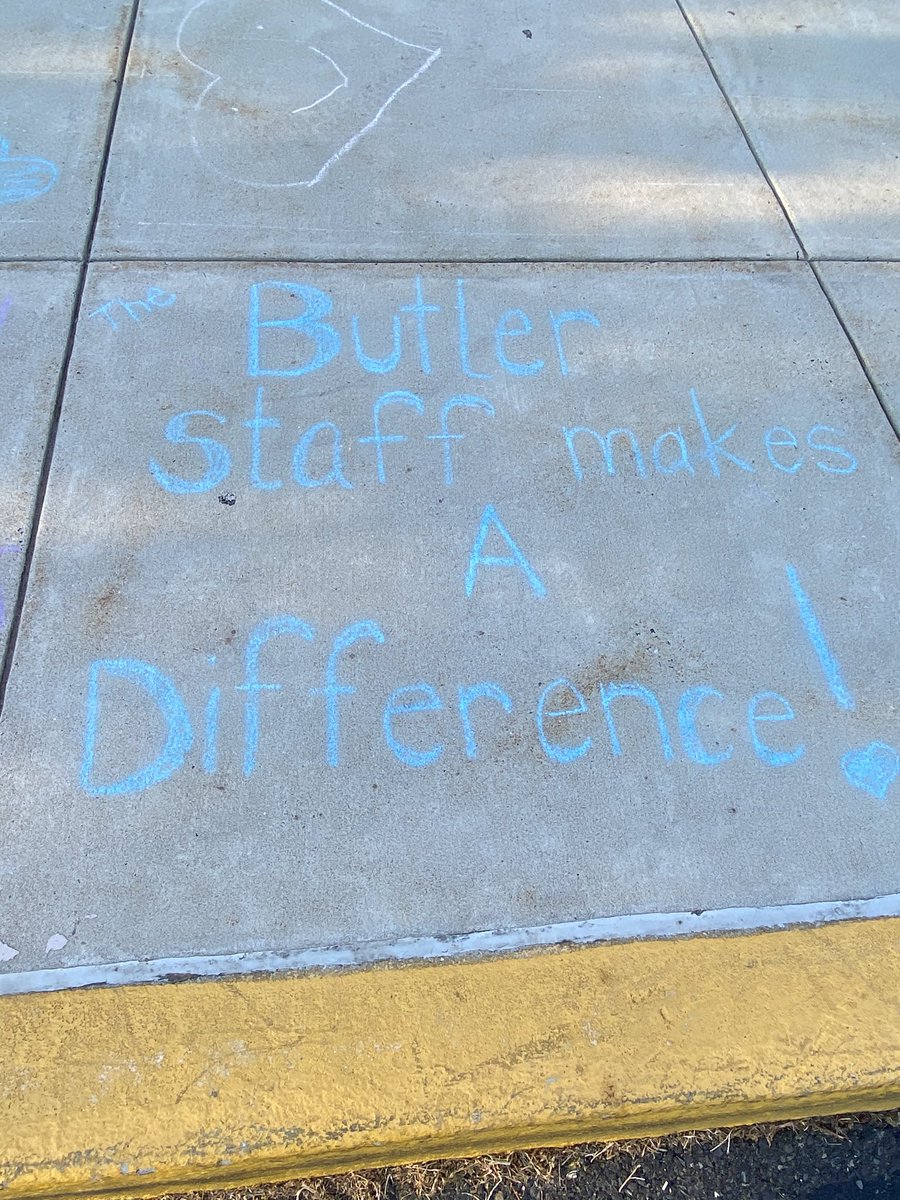 The Butler
Staff makes
A
Difference!